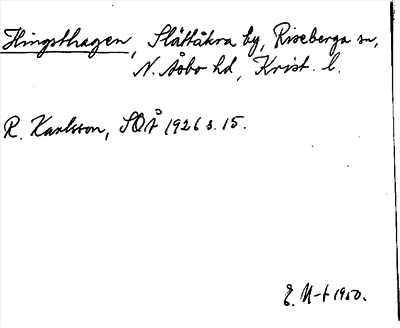 Hingsthagen, Slättåkra by, Riseberga sn,
N. Åsbo hd, Krist. l.
R. Karlsson, SOÅ 1926 s. 15.
E. U-t 1950.